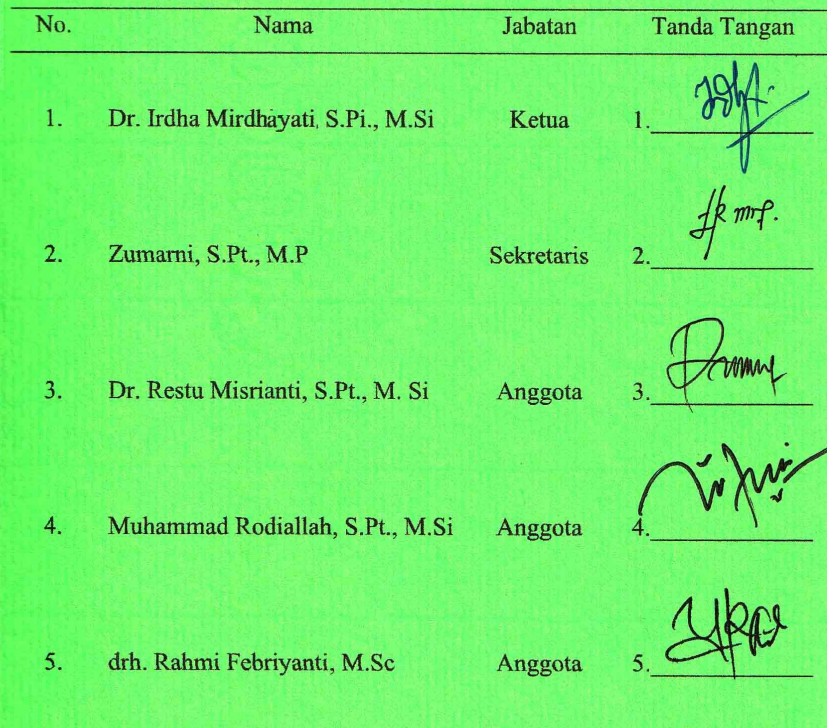 No. Nama Jabatan Tanda Tangan
1. Dr. Irdha Mirdhayati, S.Pi., M.Si Ketua 1.
2. Zumarni, S.Pt., M.P Sekretaris 2.
3. Dr. Restu Misrianti, S.Pt., M. Si Anggota 3.
4. Muhammad Rodiallah, S.Pt., M.Si Anggota 4.
5. drh. Rahmi Febriyanti, M.Sc Anggota 5.